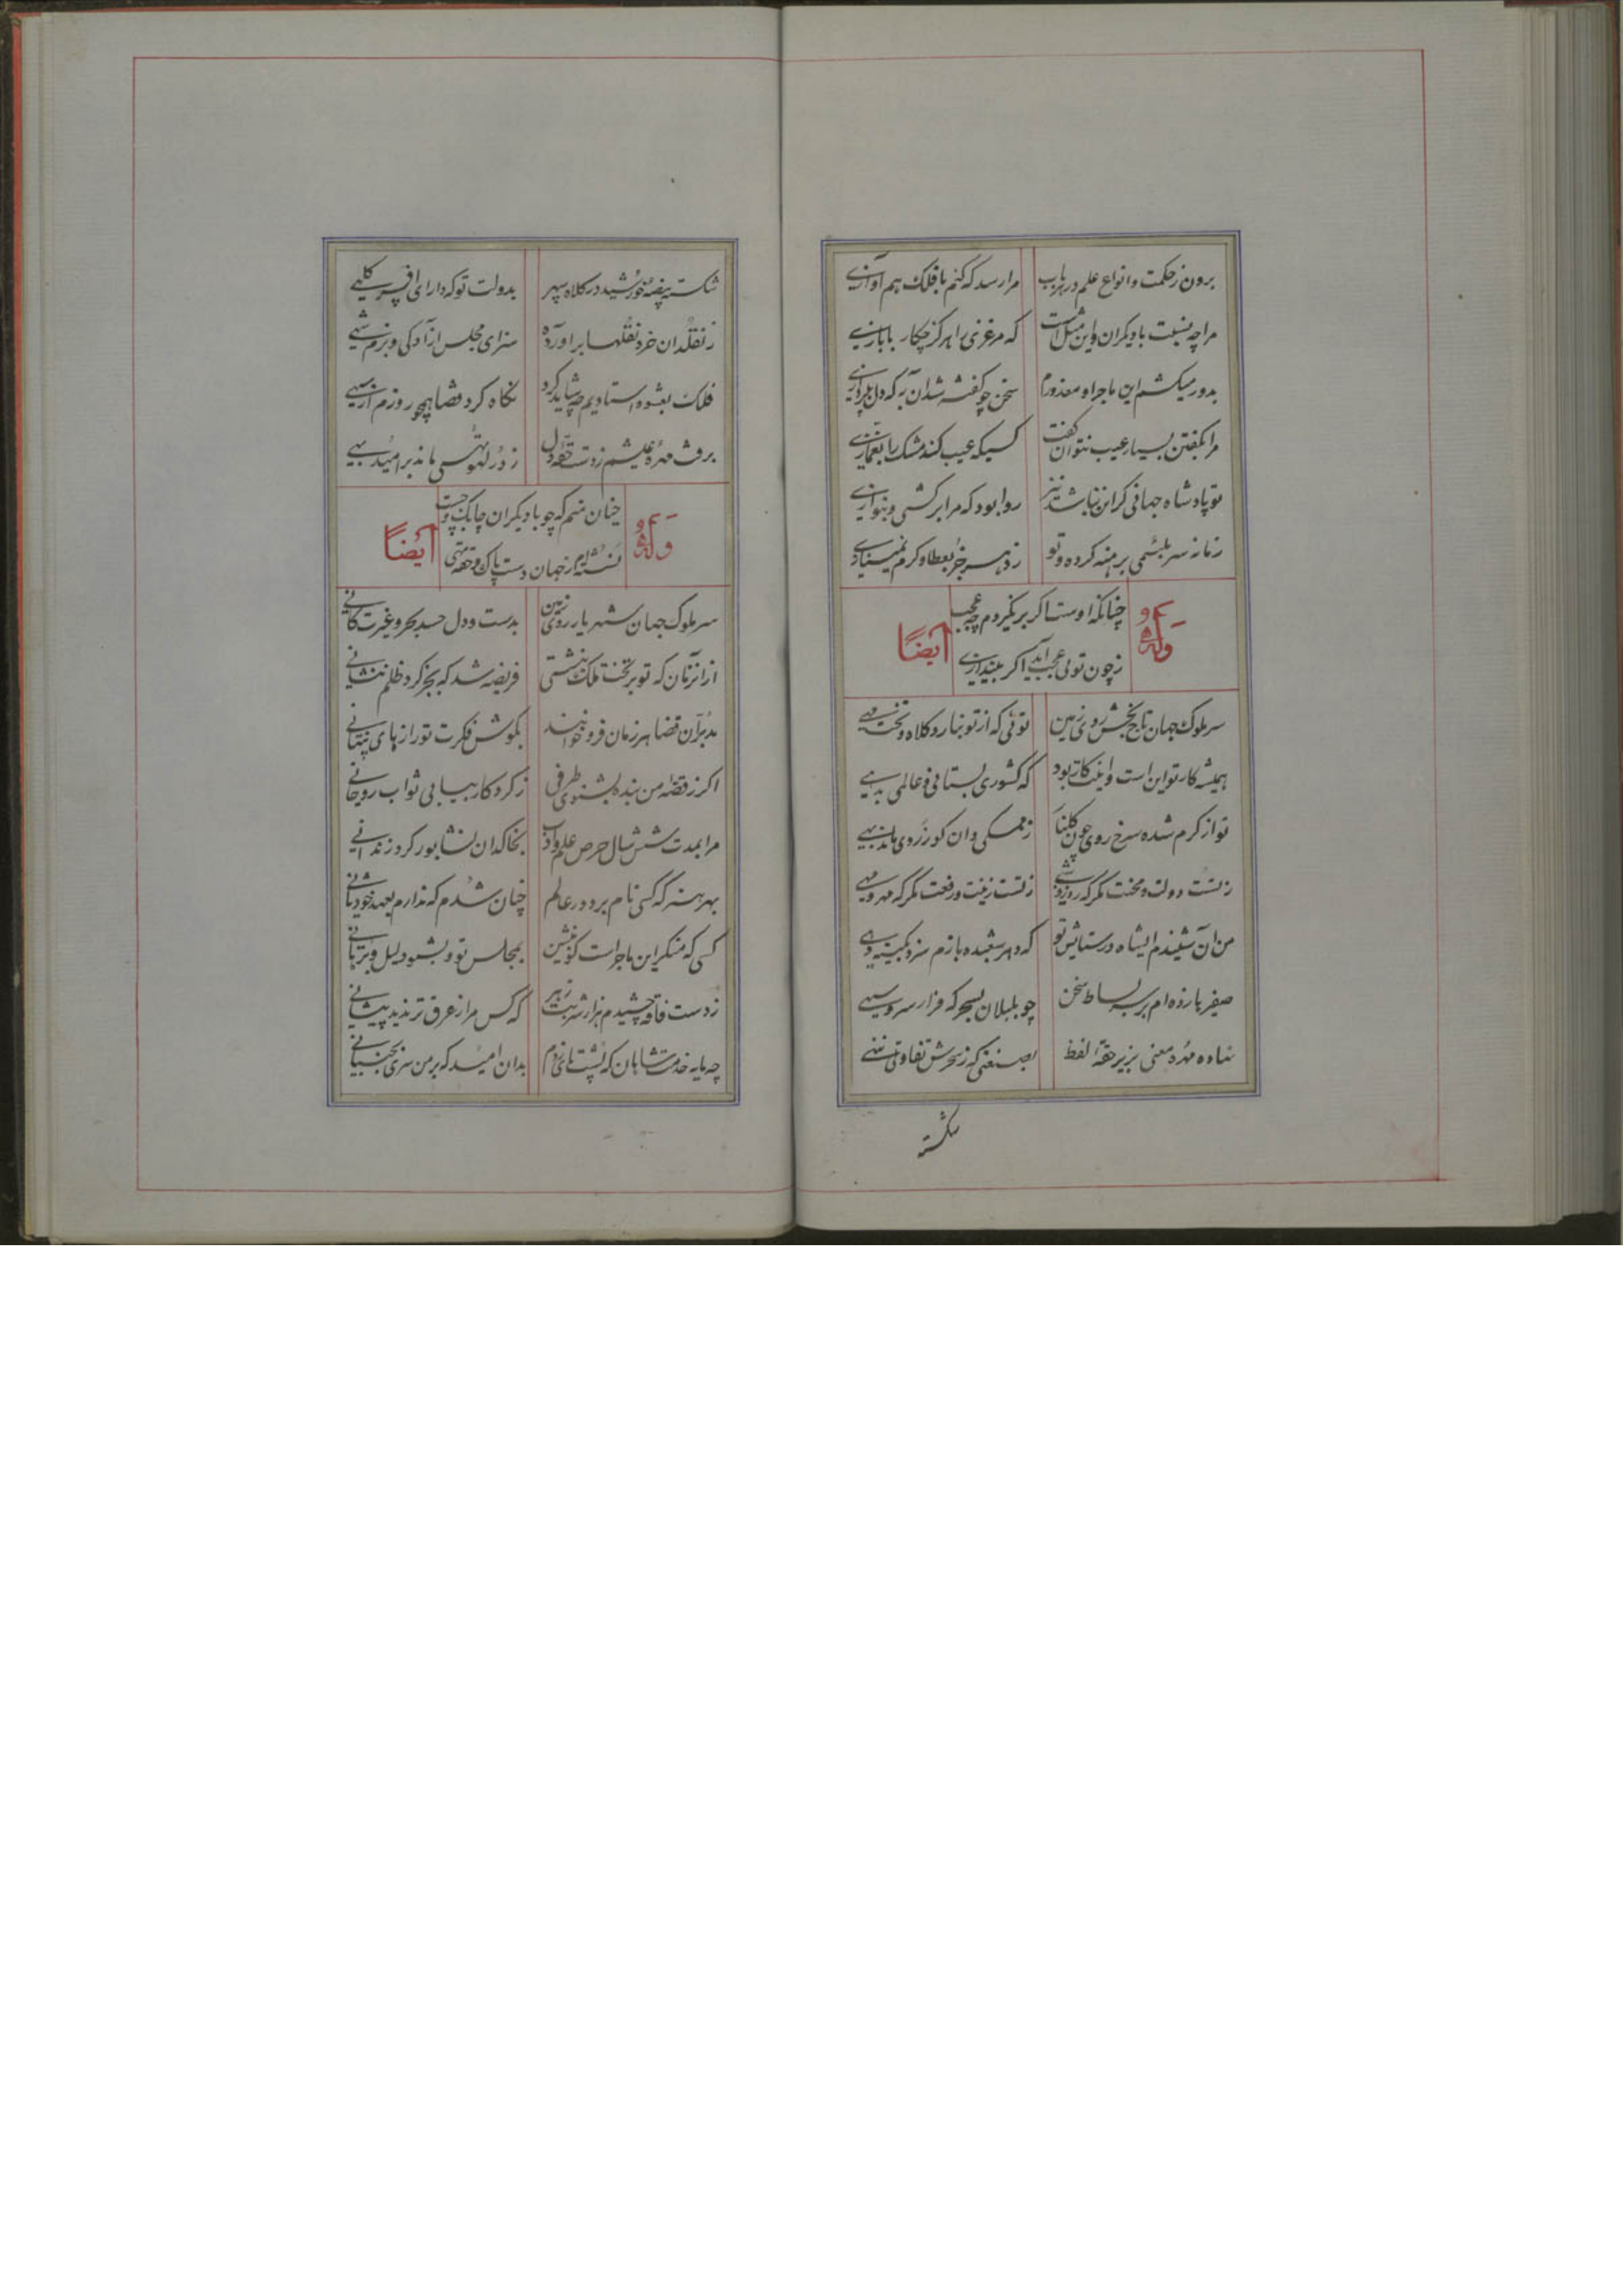 برون ز حکمت و انواع علم در هر باب مرا رسد که کنم با فلک هم آوازی
مرا چه نسبت با دیگران و این مثل است که مرغزی را هرگز چکار با بازی
بدور میکشم این ماجرا و معذورم سخن چو گفته شد آن به که دل بپردازی
مرا بگفتن بسیار عیب نتوان گفت کسیکه عیب کند مشک را بغمازی
تو پادشاه جهانی گر این نباشد نیز روا بود که مرا برکشی و بنوازی
زمانه سر بلئیمی برهنه کرده و تو ز دهر سر جز بعطا و کرم
وله چنانکه اوست اگر بر نگیردم چه عجب ایضاً
ز چون توئی عجب آید اگر بیندازی
سر ملوک جهان تاج بخش روی زمین توئی که از تو بنازد کلاه و تخت مهی
همیشه کار تو این است و اینت کار بود که کشوری بستانی و عالمی بدهی
تو از کرم شده سرخ روی چون گلنار ز ممسکی دان کو زرد روی ماند بهی
ز تست دولت و محنت مگر که روز و شبی ز تست زینت و رفعت مگر که مهر و مهی
من آن شنیدم ایشاه در ستایش تو که دهر شعبده بازم سزد کمینه رهی
صفیرها زده‌ام بر بساط سخن چو بلبلان بسحر که فراز سرو سهی
نهاده مهره معنی بزیر حقه لفظ بصنعتی که ز سحرش تفاوتی ننهی
شکسته
شکسته بیضه خورشید در کلاه سپهر بدولت تو که دارای افسر کلهی
ز نقلدان خرد نقلها برآورده سزای مجلس آزادگی و بزم شهی
فلک بعشوه استادیم چه شاید کرد نگاه کرد قضا همچو روزم از سیهی
برفت مهره عیشم ز دست حقه دل
وله چنان منم که چو با دیگران چابک و چست ایضاً
نشسته‌ام ز جهان دست پاک و حقه تهی
سر ملوک جهان شهریار روی زمین بدست و دل حسد بحر و غیرت کانی
از آن زمان که تو بر تخت ملک بنشستی فریضه شد که بجز کرد ظلم ننشانی
مدبران قضا هر زمان فرو خوانند بگوش فکرت تو رازهای پنهانی
اگر ز قصه من بنده بشنوی طرفی ز کردگار بیابی ثواب روحانی
مرا بمدت شش سال حرص علم و ادب بخاکدان نشابور کرد زندانی
بهر هنر که کسی نام برد در عالم چنان شدم که ندارم بعهد خود ثانی
کسی که منکر این ماجراست گو بنشین بمجلس تو و بشنو دلیل و برهانی
ز دست فاقه چشیدم هزار شربت زهر که کس مرا ز عرق تر ندید پیشانی
چه مایه خدمت شاهان که پشت پای زدم بدان امید که بر من سری بجنبانی